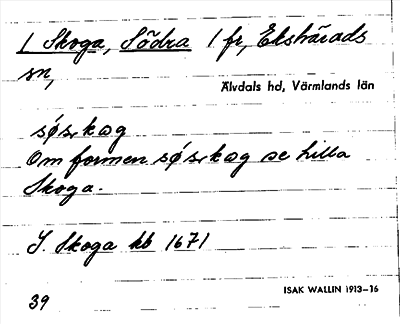 1 Skoga, Södra 1 fr, Ekshärads
sn,
Älvdals hd, Värmlands län
søskog
Om formen søskog se Lilla
Skoga.
S. Skoga kb 1671
ISAK WALLIN 1913-16
39